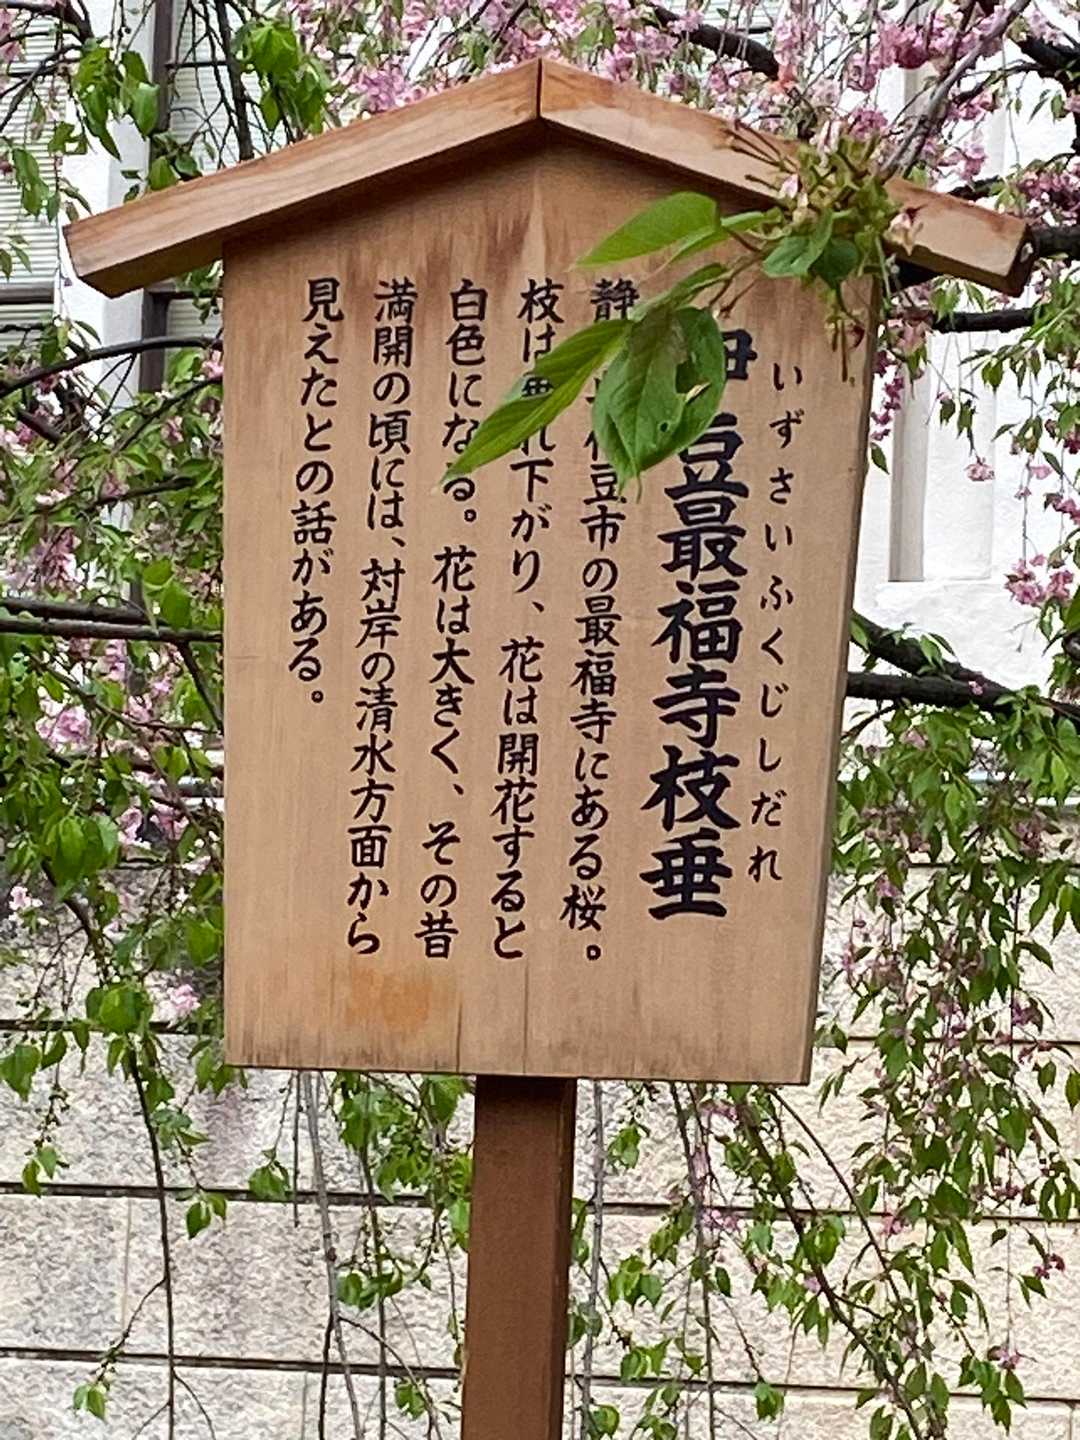 いずさいふくじしだれ
豆最福寺枝垂
静 豆市の最福寺にある桜。
枝は 下がり、花は開花すると
白色になる。花は大きく、その昔
満開の頃には、対岸の清水方面から
見えたとの話がある。